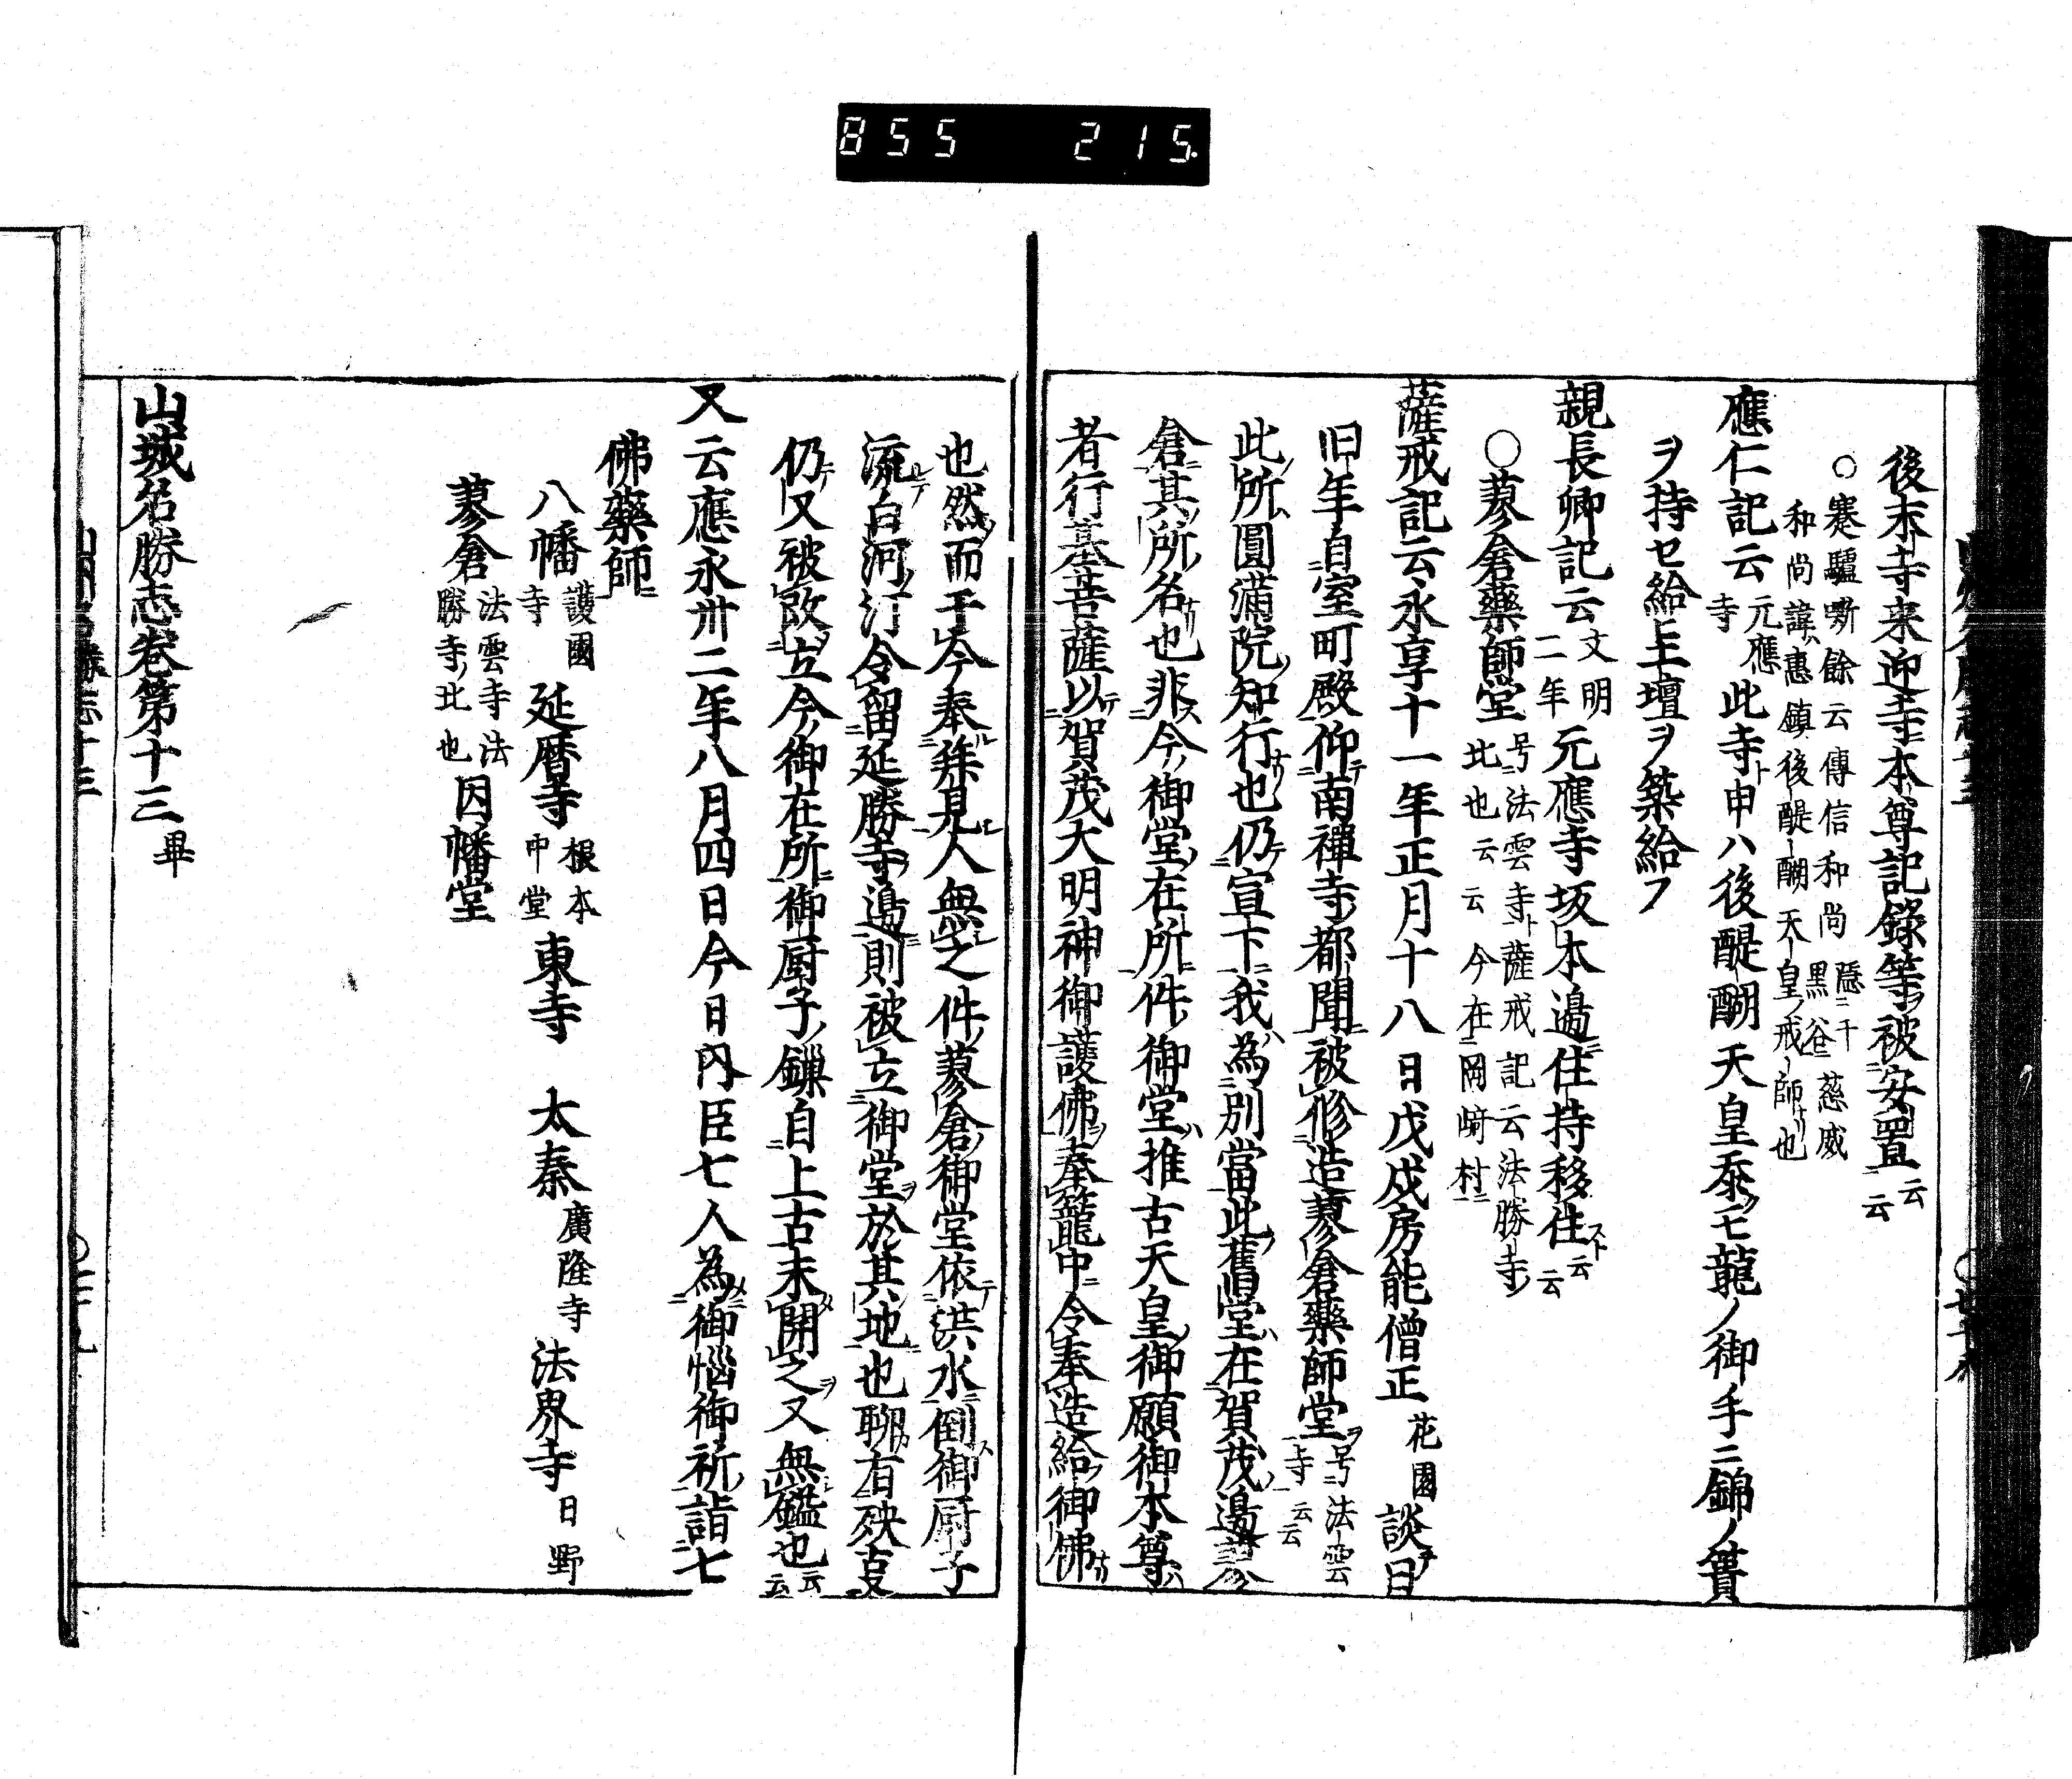 855 215.
後末寺来迎寺本尊記錄等被安置云云
○蹇驢嘶餘云傳信和尚隱黒谷千慈威
和尚諱惠鎮後醍醐天皇ノ戒師也
應仁記云元應寺此寺ト申ハ後醍醐天皇忝モ龍ノ御手ニ錦ノ簣
ヲ持セ給土壇ヲ築給フ
親長卿記云文明二年元應寺坂本邉住持移住スト云云
○蓼倉藥師堂号法雲寺ト薩戒記云法勝寺ノ北也云云今在岡﨑村
薩戒記云永享十一年正月十八日戊戌房能僧正花園談曰
旧年自室町殿仰南禪寺都聞被修造蓼倉藥師堂ヲ号法雲寺云云
此所圓満院知行也仍宣下我為別當此舊堂ハ在賀茂邉蓼
倉其所名也非今御堂在所件御堂ハ推古天皇御願御本尊
者行基菩薩以賀茂大明神御護佛奉籠中令奉造給御佛
也然而于今奉拜見人無之件蓼倉御堂依洪水倒御厨子
流白河汀令留延勝寺邉則被立御堂ヲ於其地也聊有殃㕝
仍又被改立今御在所御厨子鏁自上古未開之ヲ又無鑑也云云
又云應永卅二年八月四日今日内臣七人為御惱御祈詣七
佛藥師
八幡護國寺 延暦寺根本中堂 東寺 太秦廣隆寺 法界寺日野
蓼倉法雲寺法勝寺北也 因幡堂
山城名勝志巻第十三畢